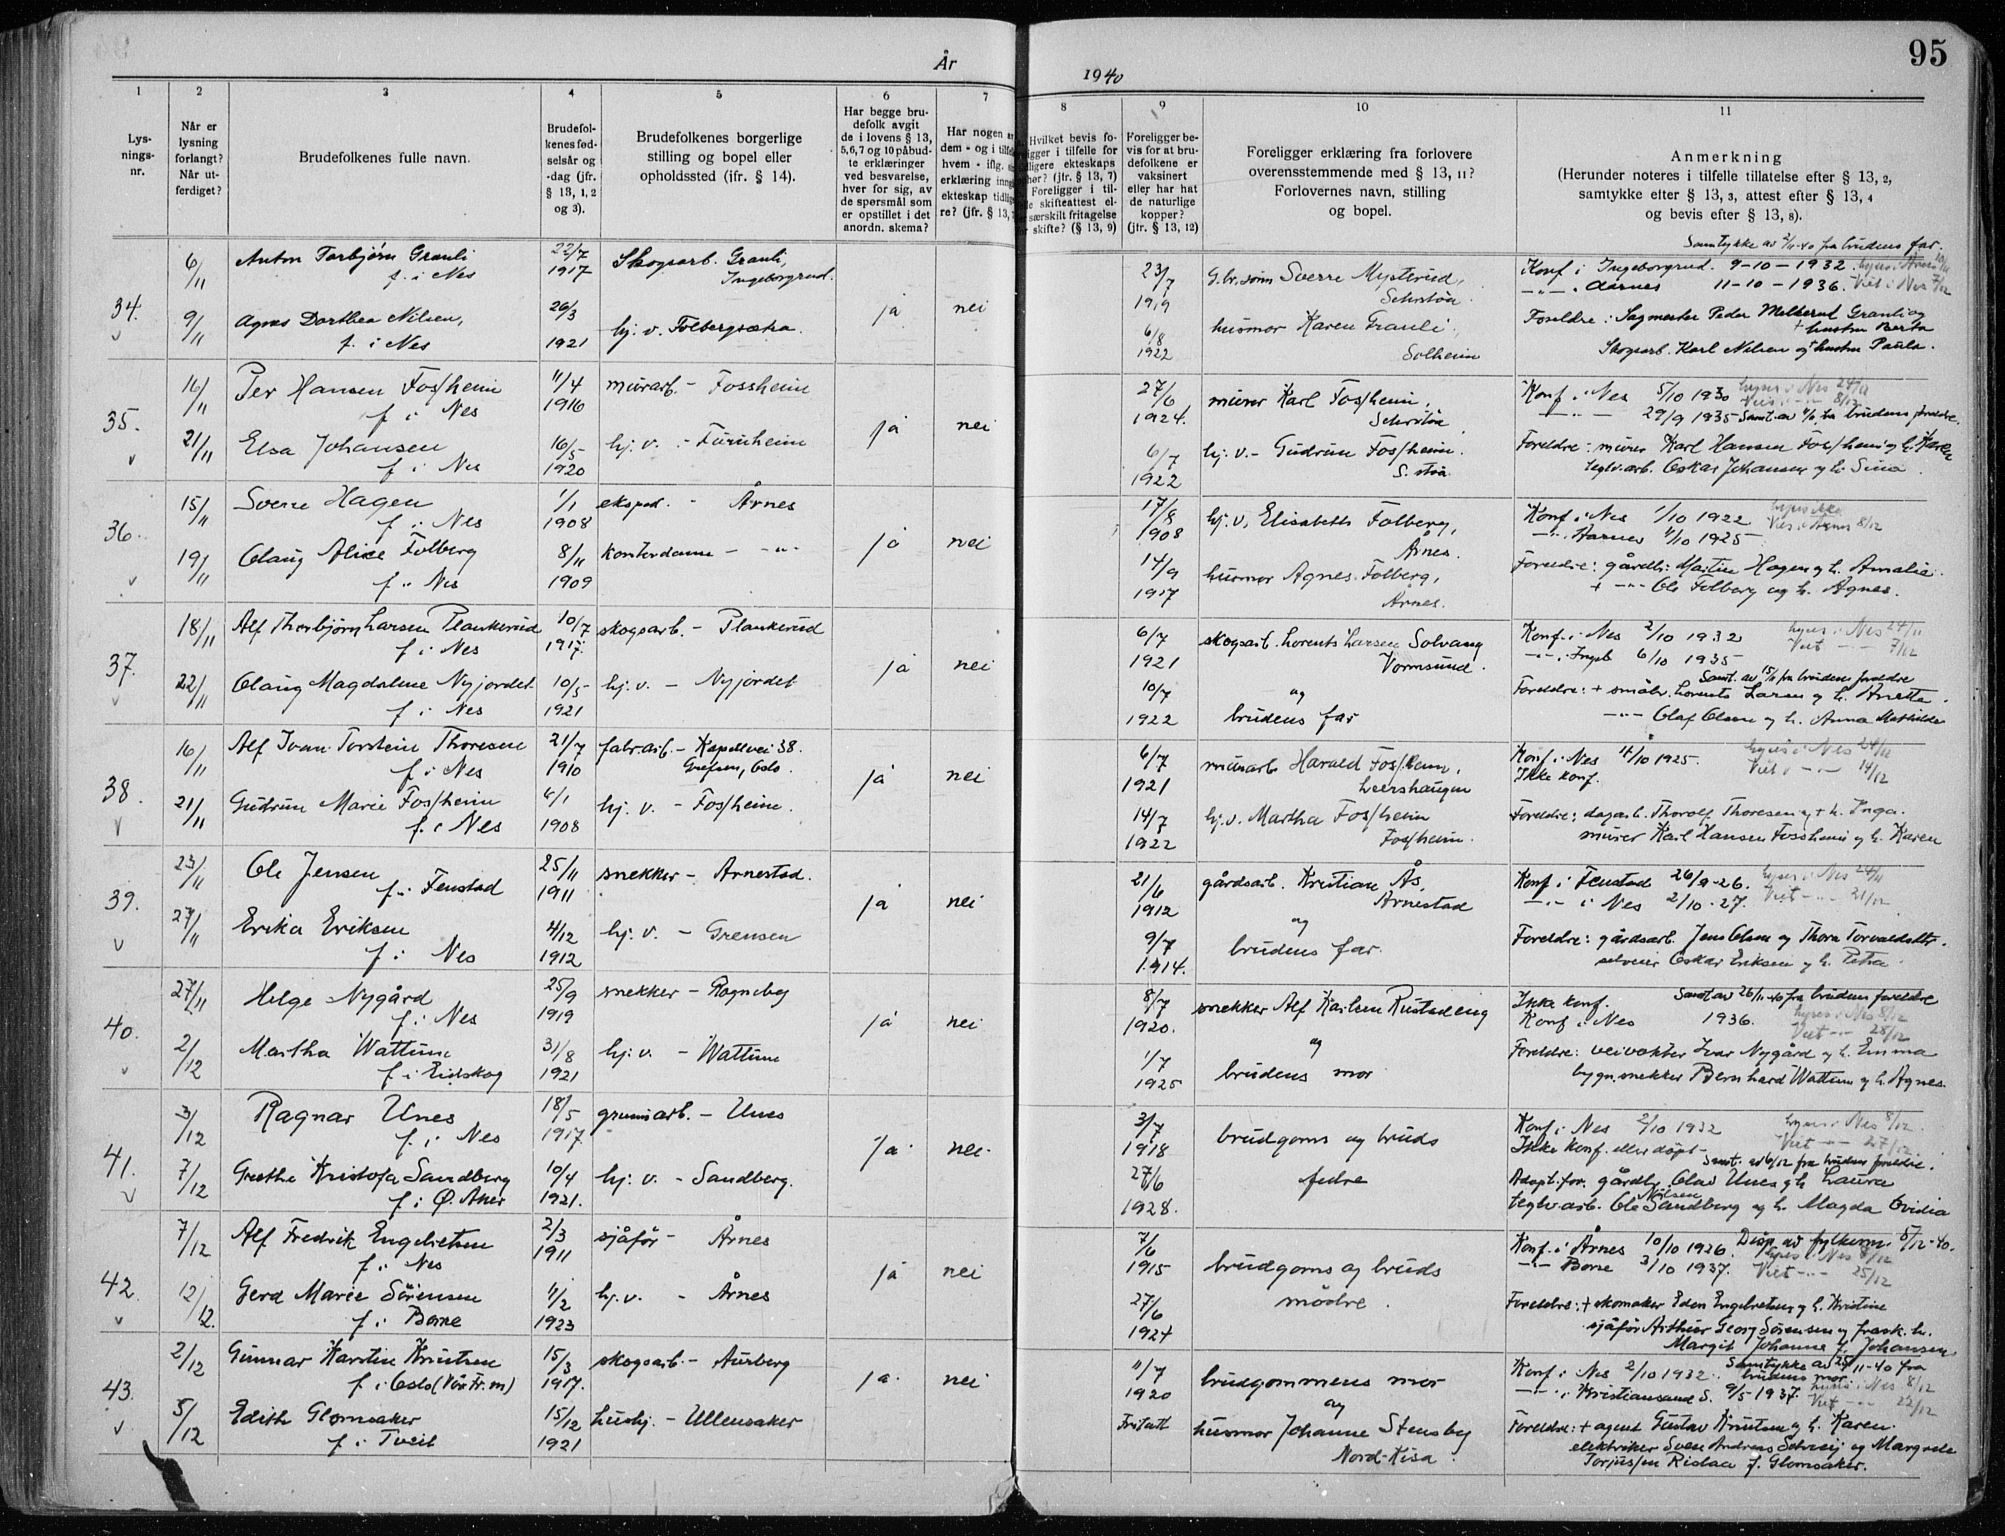 År
1940
95
1
Lys-
nings-
nr.
2
Når er
lysning
forlangt?
Når ut-
ferdiget?
3
Brudefolkenes fulle navn.
4
Brudefol-
kenes fød-
selsår og
-dag (jfr.
§ 13, 1, 2
og 3).
5
Brudefolkenes borgerlige
stilling og bopel eller
opholdssted (ifr. § 14).
6
Har begge bru-
defolk avgit
de i lovens § 13,
5,6,7 og 10 påbud-
te erklæringer
ved besvarelse,
hver for sig, av
de spørsmål som
er opstillet i det
anordn. skema?
7
Har nogen
dem - og i
hvem - iflg.
erklæring
ekteskap
re? (jfr. § 13,
8
Hvilket bevis fo-
ligger i tilfelle for
ekteskaps
(jfr. § 13, 7)
Foreligger i til-
skifteattest el-
særskilt fritagelse
skifte? (§ 13, 9)
9
Foreligger be-
vis for at bru-
defolkene er
vaksinert
eller har hat
de naturlige
kopper?
(jfr. § 13, 12)
10
Foreligger erklæring fra forlovere
overensstemmende med § 13, 11?
Forlovernes navn, stilling
og bopel.
11
Anmerkning
(Herunder noteres i tilfelle tillatelse efter § 13, 2,
samtykke efter § 13, 3, attest efter § 13, 4
og bevis efter § 13, 8).
34.
6/11
Anton Torbjørn Granli
f. i Nes
22/7
1917
Skogsarb. Granli,
Ingeborgrud.
9/11
Agnes Dorthea Nilsen,
f. i Nes
26/3
1921
hj. v. Folbergsætra.
ja
nei
23/7
1919
G.br.sønn Sverre Mysterud,
6/8
1922
husmor Karen Granli
Solheim
Samtykke av 2/11-40 fra brudens far.
Konf i Ingeborgrud. 9-10-1932.
-"- i Aarnes 11-10-1936. Viet i Nes 7/12
Foreldre: Sagmester Peder Granli og
hustru Berta
Skogsarb. Karl Nilsen og hustru Paula.
35.
16/11
Per Hansen Fossheim
f i Nes
11/4
1916
murarb. - Fossheim
21/11
Elsa Johansen
f i Nes
16/5
1920
hj. v. - Furuheim
ja
nei
27/6
1924.
murer Karl Fossheim,
6/7
1922
hj. v. - Gudrun Fossheim.
S. støa
Konf. i Nes 5/10 1930 lyses i Nes 24/11
Viet i -"- 8/12
-"- 29/9 1935 Samt. av fra brudens foreldre.
Foreldre: murer Karl Hansen Fossheim og h. Karen
teglv.arb. Oskar Johansen og h. Sina.
36.
15/11
Sverre Hagen
f. i Nes
1/1
1908
eksped. - Årnes
19/11
Olaug Alice Folberg
f. i Nes
8/11
1909
kontordame - -"-
ja
nei
17/8
1908
hj. v, Elisabeth Folberg,
Årnes.
14/9
1917
husmor Agnes Folberg,
Årnes.
Konf i Nes 1/10 1922
Viet i Årnes 8/12
-"- Aarnes 4/10 1925
Foreldre: gårdbr. Martin Hagen og h. Amalie.
+ -"- Ole Folberg og h. Agnes.
37.
18/11
Alf Thorbjørn Larsen Plankerud
f. i Nes
10/7
1917.
skogsarb. - Plankerud
22/11
Olaug Magdalene Nyjordet
f. i Nes
10/5
1921
hj. v. - Nyjordet
ja
nei
6/7
1921
skogsarb. Lorents Larsen Solvang
Vormsund.
10/7
1922
og
brudens far
Konf. i Nes 2/10 1932 lyses i Nes 24/11
Viet -"- 7/12
-"- i Ingeb 6/10 1935
Samt. av 15/11 fra brudens foreldre
Foreldre: + småbr. Lorents Larsen og h. Anette.
-"- Olaf Olsen og h. Anna Mathilde
38.
16/11
Alf Ivan Torstein Thoresen
f i Nes
21/7
1910
fabr.arb. - Kapellvei 38.
Grefsen, Oslo.
21/11
Gudrun Marie Fossheim
f. i Nes
6/1
1908
hj. v. - Fossheim.
ja
nei
6/7
1921
murarb Harald Fossheim,
Leershaugen
14/7
1922
hj. v. Martha Fossheim
Fossheim.
Konf. i Nes 4/10 1925. lyses i Nes 24/11
Viet i -"- 14/12
Ikke konf.
Foreldre: dagarb. Thorolf Thoresen og + h. Inga.
murer Karl Hansen Fossheim og h. Karen
39.
23/11
Ole Jensen
f. i Fenstad
25/11
1911
snekker - Årnestad.
27/11
Erika Eriksen
f. i Nes
4/12
1912
hj. v. - Grensen
ja
nei
21/6
1912
gårdsarb. Kristian Ås,
Årnestad
9/7
1914.
og
brudens far.
Konf. i Fenstad 26/9-26. lyses i Nes 24/11
-"- i Nes 2/10-27. Viet -"- 21/12
Foreldre: gårdsarb. Jens Olsen og Thora Torvaldsdtr.
selveier Oskar Eriksen og h. Petra.
40.
27/11
Helge Nygård
f. i Nes
25/9
1919
snekker - Rogneby
2/12
Martha Wattum
f. i Eidskog
31/8
1921
hj. v. - Wattum
ja
nei
8/7
1920.
snekker Alf Karlsen Rustadeng
1/7
1925
og
brudens mor
Ikke konf. Samt av 26/11-40 fra brudens foreldre
Konf i Nes 1936. lyses i Nes 8/12
Viet -"- 28/12
Foreldre: veivokter Ivar Nygård og h. Emma
bygn.snekker Bernhard Wattum og h. Agnes.
41.
3/12
Ragnar Unes
f. i Nes
18/5
1917.
grunnarb. - Unes
7/12
Grethe Kristofa Sandberg
f. i Ø. Aker
10/4
1921.
hj. v. - Sandberg.
ja
nei.
3/7
1918
brudgoms og bruds
27/6
1928.
fedre
Konf. i Nes 2/10 1932 lyses i Nes 8/12.
Viet -"- 27/12
Ikke konf. eller døpt.
Samt. av 6/12 fra brudens foreldre.
Adopt. for. gårdbr. Olav Unes og h. Laura
Nilsen
teglv.arb. Ole Sandberg og h. Magda Ovidia
42.
7/12
Alf Fredrik Engebretsen
f. i Nes
2/3
1911
sjåfør - Årnes
12/12.
Gerd Marie Sørensen
f. i Borre
11/2
1923
hj. v. - Årnes
ja
nei
7/6
1915
brudgoms og bruds
27/6
1924
mødre.
Konf. i Årnes 10/10 1926. Disp. av fylkesm. 5/12-40.
lyses i Nes 8/12
-"- Borre 3/10 1937. Viet -"- 25/12
Foreldre: + skomaker Eden Engebretsen og h. Kristine
sjåfør Arthur Georg Sørensen og frask. h.
Margit Johanne f. Johansen
43.
2/12
Gunnar Karstin Knutsen
f. i Oslo (Vår Fr. m)
15/3
1917.
skogsarb. - Aurberg
5/12
Edith Glomsaker
f. i Tveit
15/12
1921
hushj. - Ullensaker
ja.
nei
11/7
1920
brudgommens mor
og
Fritatt
husmor Johanne Stensby
Nord-Kisa.
Samtykke av 25/11-40 fra
brudens mor
Konf. i Nes 2/10 1932. lyses i Nes 8/12
-"- i Kristiansand S. 9/5-1937. Viet -"- 22/12
Foreldre: + agent Gustav Knutsen og h. Karen.
elektriker Sven Andreas Solvsij og Margrete
Torjussen Rislaa f. Glomsaker.